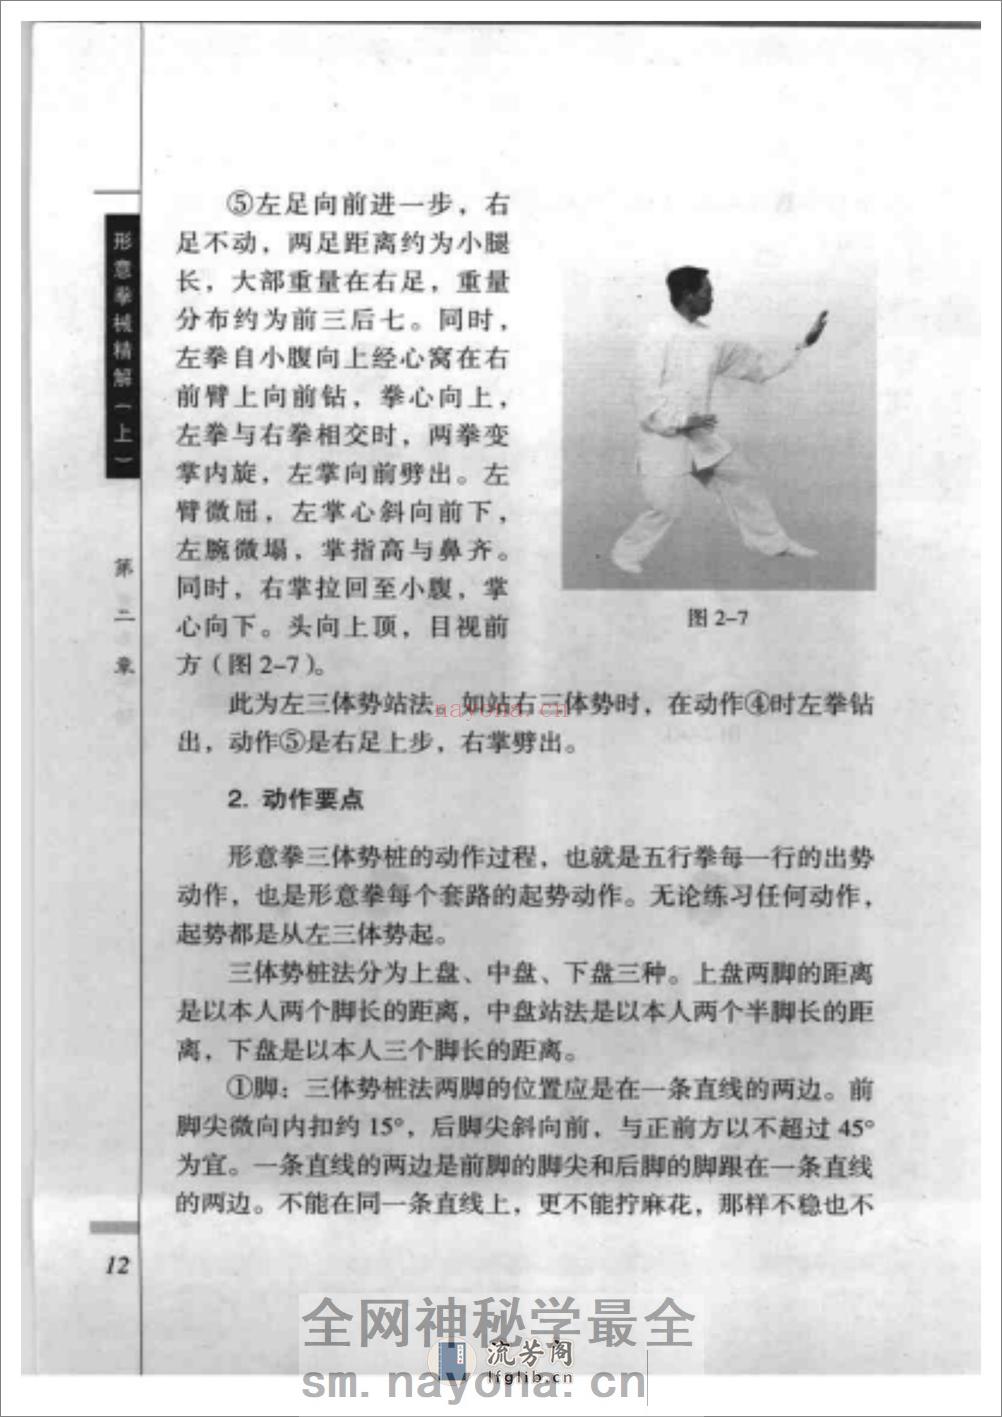 形意拳械精解（上）
第二章
⑤左足向前进一步，右
足不动，两足距离约为小腿
长，大部重量在右足，重量
分布约为前三后七。同时，
左拳自小腹向上经心窝在右
前臂上向前钻，拳心向上，
左拳与右拳相交时，两拳变
掌内旋，左掌向前劈出。左
臂微屈，左掌心斜向前下，
左腕微塌，掌指高与鼻齐。
同时，右掌拉回至小腹，掌
心向下。头向上顶，目视前
方（图2-7）。
图 2-7
此为左三体势站法。如站右三体势时，在动作④时左拳钻
出，动作⑤是右足上步，右掌劈出。
nayona.cn
2. 动作要点
形意拳三体势桩的动作过程，也就是五行拳每一行的出势
动作，也是形意拳每个套路的起势动作。无论练习任何动作，
起势都是从左三体势起。
三体势桩法分为上盘、中盘、下盘三种。上盘两脚的距离
是以本人两个脚长的距离，中盘站法是以本人两个半脚长的距
离，下盘是以本人三个脚长的距离。
①脚：三体势桩法两脚的位置应是在一条直线的两边。前
脚尖微向内扣约 15°，后脚尖斜向前，与正前方以不超过 45°
为宜。一条直线的两边是前脚的脚尖和后脚的脚跟在一条直线
的两边。不能在同一条直线上，更不能拧麻花，那样不稳也不
12
全网神秘学最全
流芳阁
lfglib.cn
sm.nayona.cn